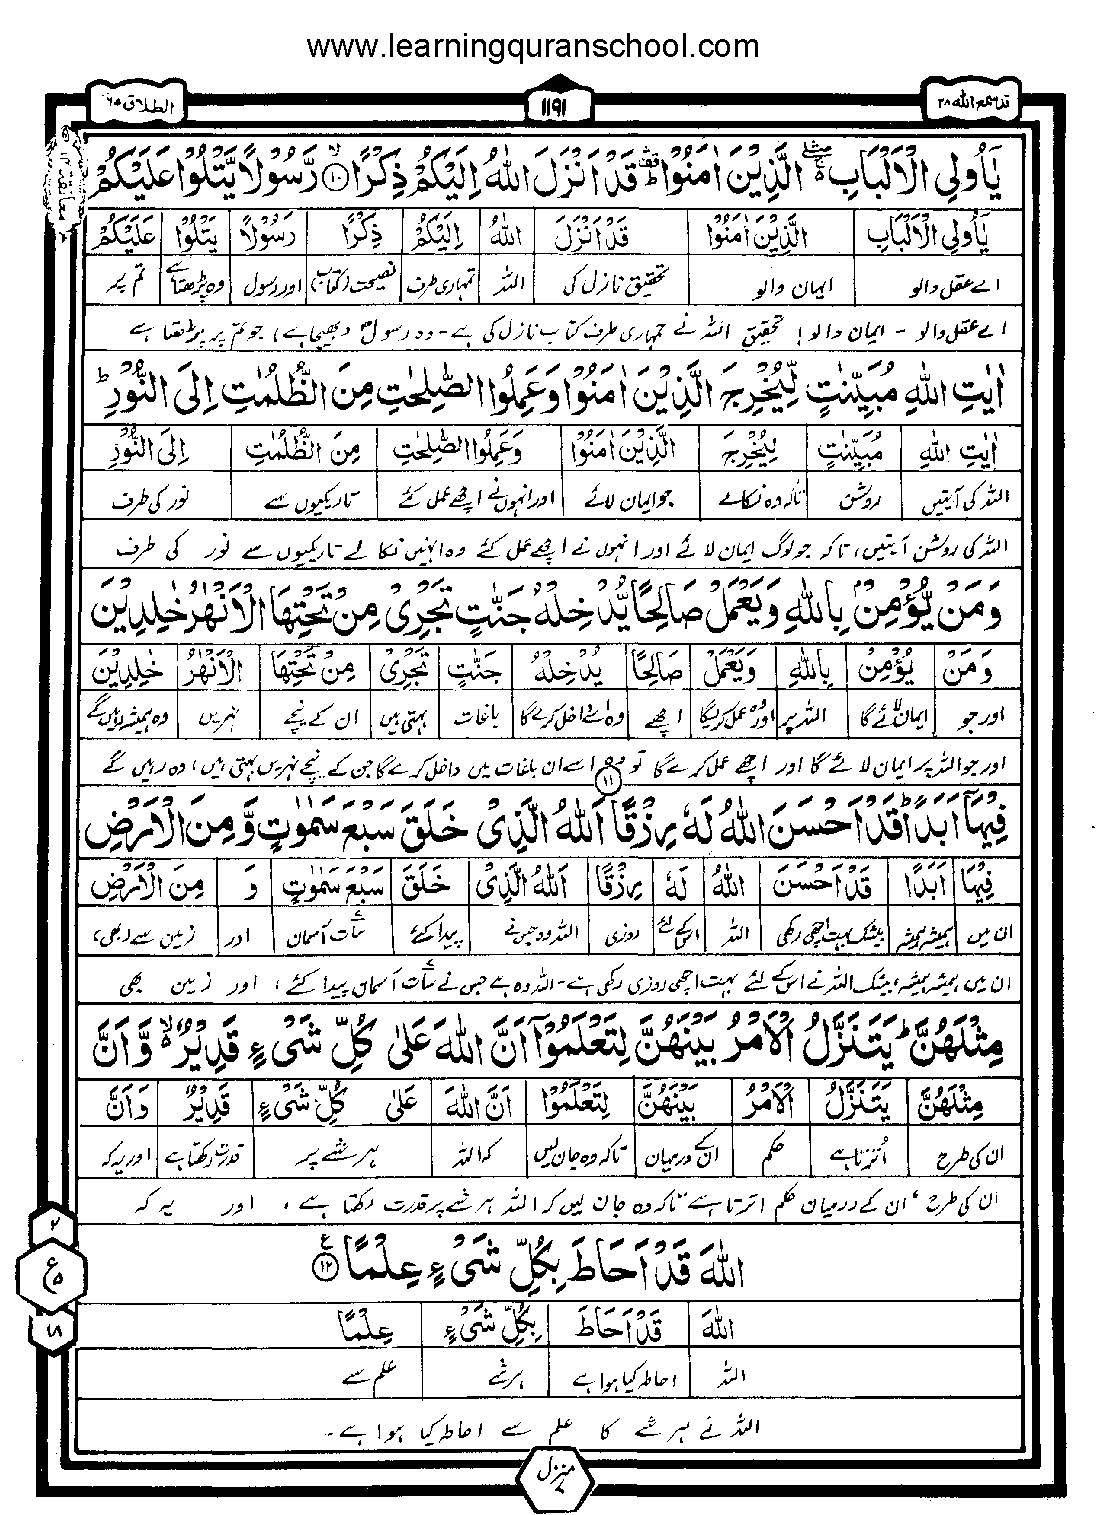 www.learningquranschool.com
الطلاق ٦٥
١١٩١
قد سمع الله ٢٨
معانقة
يٰۤاُولِى الْاَلْبَابِ ۛۚ الَّذِيْنَ اٰمَنُوْا ۛؕ قَدْ اَنْزَلَ اللّٰهُ اِلَيْكُمْ ذِكْرًا ۙ﴿۱۰﴾ رَّسُوْلًا يَّتْلُوْا عَلَيْكُمْ
يٰۤاُولِى الْاَلْبَابِ الَّذِيْنَ اٰمَنُوْا قَدْ اَنْزَلَ اللّٰهُ اِلَيْكُمْ ذِكْرًا رَسُوْلًا يَتْلُوْا عَلَيْكُمْ
اے عقل والو ایمان والو تحقیق نازل کی اللہ تمہاری طرف نصیحت (کتاب) اور رسول وہ پڑھتا ہے تم پر
اے عقل والو - ایمان والو! تحقیق اللہ نے تمہاری طرف کتاب نازل کی ہے - وہ رسول (بھیجا ہے) جو تم پر پڑھتا ہے
اٰيٰتِ اللّٰهِ مُبَيِّنٰتٍ لِّيُخْرِجَ الَّذِيْنَ اٰمَنُوْا وَعَمِلُوا الصّٰلِحٰتِ مِنَ الظُّلُمٰتِ اِلَى النُّوْرِ ؕ
اٰيٰتِ اللّٰهِ مُبَيِّنٰتٍ لِيُخْرِجَ الَّذِيْنَ اٰمَنُوْا وَعَمِلُوا الصّٰلِحٰتِ مِنَ الظُّلُمٰتِ اِلَى النُّوْرِ
اللہ کی آیتیں روشن تاکہ وہ نکالے جو ایمان لائے اور انہوں نے اچھے عمل کئے تاریکیوں سے نور کی طرف
اللہ کی روشن آیتیں، تاکہ جو لوگ ایمان لائے اور انہوں نے اچھے عمل کئے وہ انہیں نکالے تاریکیوں سے نور کی طرف
وَمَنْ يُّؤْمِنْۢ بِاللّٰهِ وَيَعْمَلْ صَالِحًا يُّدْخِلْهُ جَنّٰتٍ تَجْرِىْ مِنْ تَحْتِهَا الْاَنْهٰرُ خٰلِدِيْنَ
وَمَنْ يُؤْمِنْ بِاللّٰهِ وَيَعْمَلْ صَالِحًا يُدْخِلْهُ جَنّٰتٍ تَجْرِىْ مِنْ تَحْتِهَا الْاَنْهٰرُ خٰلِدِيْنَ
اور جو ایمان لائے گا اللہ پر اور وہ عمل کریگا اچھے وہ اسے داخل کرے گا باغات بہتی ہیں ان کے نیچے نہریں وہ ہمیشہ رہیں گے
اور جو اللہ پر ایمان لائے گا اور اچھے عمل کرے گا تو وہ اسے ان باغات میں داخل کرے گا جن کے نیچے نہریں بہتی ہیں، وہ رہیں گے
فِيْهَاۤ اَبَدًا ؕ قَدْ اَحْسَنَ اللّٰهُ لَهٗ رِزْقًا ﴿۱۱﴾ اَللّٰهُ الَّذِىْ خَلَقَ سَبْعَ سَمٰوٰتٍ وَّمِنَ الْاَرْضِ
فِيْهَا اَبَدًا قَدْ اَحْسَنَ اللّٰهُ لَهٗ رِزْقًا اَللّٰهُ الَّذِىْ خَلَقَ سَبْعَ سَمٰوٰتٍ وَ مِنَ الْاَرْضِ
ان میں ہمیشہ ہمیشہ بیشک بہت اچھی رکھی اللہ اس کے لئے روزی اللہ وہ جس نے پیدا کئے سات آسمان اور زمین سے (بھی)
ان میں ہمیشہ ہمیشہ، بیشک اللہ نے اس کے لئے بہت اچھی روزی رکھی ہے - اللہ وہ ہے جس نے سات آسمان پیدا کئے، اور زمین بھی
مِثْلَهُنَّ ؕ يَتَنَزَّلُ الْاَمْرُ بَيْنَهُنَّ لِتَعْلَمُوْۤا اَنَّ اللّٰهَ عَلٰى كُلِّ شَىْءٍ قَدِيْرٌ ۙ وَّاَنَّ
مِثْلَهُنَّ يَتَنَزَّلُ الْاَمْرُ بَيْنَهُنَّ لِتَعْلَمُوْۤا اَنَّ اللّٰهَ عَلٰى كُلِّ شَىْءٍ قَدِيْرٌ وَاَنَّ
ان کی طرح اترتا ہے حکم ان کے درمیان تاکہ وہ جان لیں کہ اللہ ہر شے پر قدرت رکھتا ہے اور یہ کہ
ان کی طرح، ان کے درمیان حکم اترتا ہے تاکہ وہ جان لیں کہ اللہ ہر شے پر قدرت رکھتا ہے، اور یہ کہ
اللّٰهَ قَدْ اَحَاطَ بِكُلِّ شَىْءٍ عِلْمًا ﴿۱۲﴾
اللّٰهَ قَدْ اَحَاطَ بِكُلِّ شَىْءٍ عِلْمًا
اللہ احاطہ کیا ہوا ہے ہر شے علم سے
اللہ نے ہر شے کا علم سے احاطہ کیا ہوا ہے -
٢
ع
٥
١٨
منزل
٧